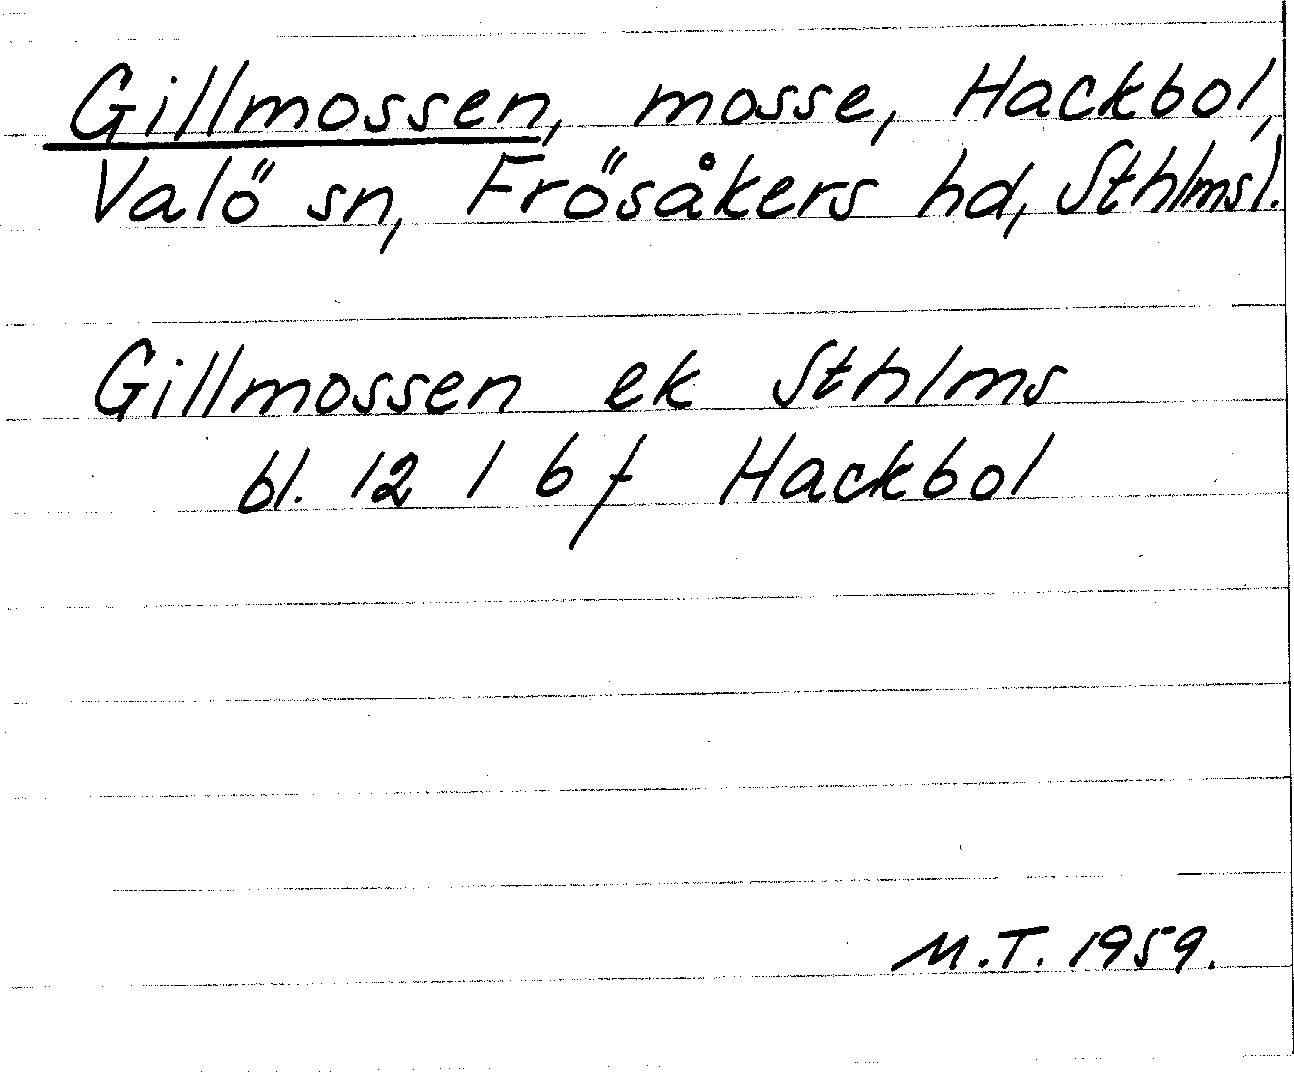 Gillmossen, mosse, Hackbol,
Valö sn, Frösåkers hd, Sthlmsl.
Gillmossen ek Sthlms
bl. 12 I 6 f Hackbol
M.T. 1959.